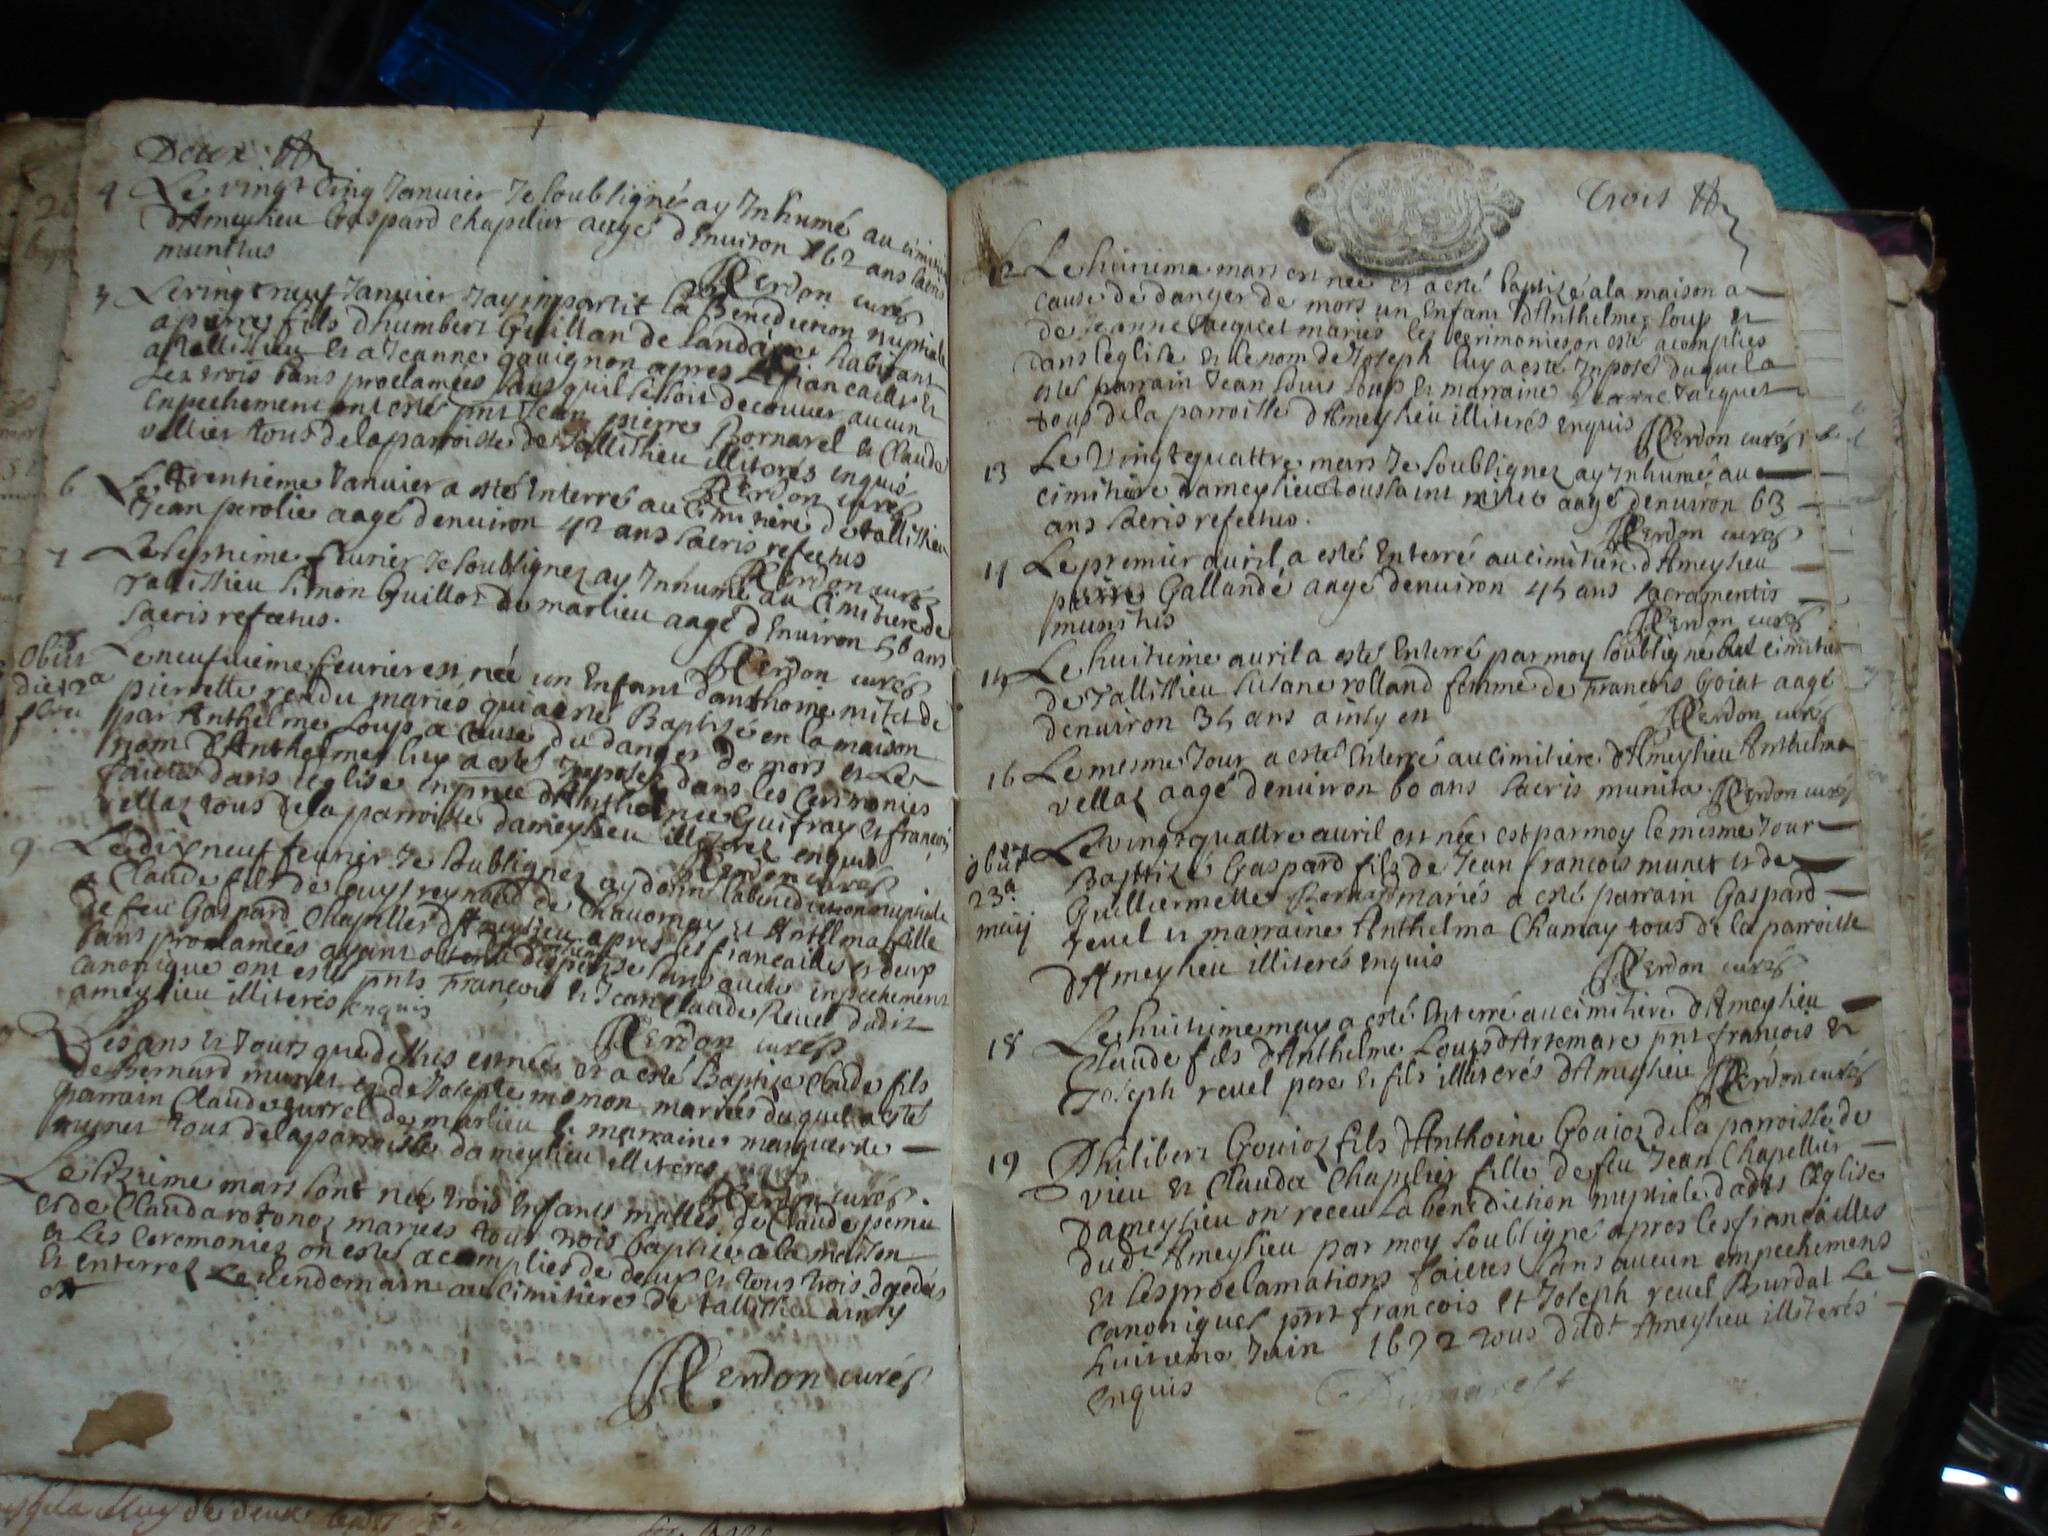 Deux
4 Le vingt cinq Janvier Je soubsigné ay Inhumé au cimitiere
d'Ameyzieu Gaspard chapelier aagé d'Environ 62 ans sacris
munitus
Perdon curé
Le vingt neuf Janvier J'ay impartit la Benediction nuptiale
a pierre fils d'humbert Guillan de Landaize habitant
a tallissieu et a Jeanne gavignon apres Les fiancailles et
Les trois bans proclamées sans qu'il se soit decouver aucun
Enpechement ont esté pnt Jean pierre Bornarel et Claude
vellier tous de la parroisse de tallissieu illiterés enquis
Perdon curé
6 Le trentieme Janvier a esté Enterré au cimitiere de tallissieu
Jean perolie aagé denviron 42 ans sacris refectus
Perdon curé
7 Le septieme fevrier Je soubsignez ay Inhumé au Cimitiere de
tallissieu simon Guillot de marlieu aagé d'Environ 56 ans
sacris refectus.
Perdon curé
Obiit
die 12a
febru
Le neufvieme fevrier est née un Enfant d'anthoine mitet de
pierrette rendu mariés qui a esté Baptizé en la maison
par Anthelme Loup a Cause du danger de mort et Le
nom d'Anthelme luy a esté Imposé dans les Ceremonies
faictes dans l'eglise en pnce d'Anthelme Guifray et françois
vellaz tous de la parroisse dameyzieu illiterez enquis
Perdon curé
9 Le dix neuf fevrier Je soubsignez ay donné la benediction nuptiale
a Claude fils de Guy reynaud de Chavornay et Anthelma fille
de feu Gaspard Chapellier d'Ameyzieu apres les fiancailles et deux
bans proclamées ayant obtenu dispense sans aucun enpechement
canonique ont esté pnts François et Jean Claude Revel dudit
ameyzieu illiterés enquis
Perdon curé
Les ans et Jours que dessus est née et a esté Baptizé Claude fils
de Bernard munet et de Josepte momon mariés duquel a esté
parrain Claude burrel de marlieu et marraine marguerite
munet tous de la parroisse dameyzieu illiteres enquis
Perdon curé.
Le sizieme mars sont née trois Enfants masles de Claude pernu
et de Clauda rotonoz mariés tous trois baptisé a la maison
et Les Ceremonies on estés acomplies de deux et tous trois dcedés
et enterrez Le Lendemain au cimitiere de tallissieu ainsy
est
Perdon curé
Trois
12 Le huitieme mars est née et a esté baptizé a la maison a
cause de danger de mort un Enfant d'Anthelme Loup et
de Jeanne Jacquet mariés les cerimonies on esté acomplies
dans l'eglise et le nom de Joseph luy a esté Inposé duquel a
esté parrain Jean Louis Loup et marraine Jeanne Jacquet
tous de la parroisse d'Ameyzieu illiterés enquis
Perdon curé
13 Le Vingt quattre mars Je soubsignez ay Inhumé au
cimitiere dameyzieu toussaint mitet aagé denviron 63
ans sacris refectus.
Perdon curé
14 Le premier avril a esté Enterré au cimitiere d'Ameyzieu
pierre Gallandé aagé denviron 45 ans sacramentis
munitus
Perdon curé
15 Le huitieme avril a esté Enterré par moy soubsigné au cimitiere
de tallissieu susane rolland femme de François Goiat aagé
denviron 35 ans ainsy est
Perdon curé
16 Le mesme Jour a esté Enterré au cimitiere d'Ameyzieu Anthelma
vellaz aagé denviron 60 ans sacris munita.
Perdon curé
obiit
23a
maij
Le vingt quattre avril est née est par moy le mesme Jour
Baptizé Gaspard fils de Jean françois munet et de
Guilliermette Bernard mariés a esté parrain Gaspard
revel et marraine Anthelma Chamay tous de la parroisse
d'Ameyzieu illiterés enquis
Perdon curé
18 Le huitieme may a esté Enterré au cimitiere d'Ameyzieu
Claude fils d'Anthelme Loup d'Artemare pnt françois et
Joseph revel pere et fils illiterés d'Ameyzieu
Perdon curé
19 Philibert Goujoz fils d'Anthoine Goujoz de la parroisse de
vieu et Clauda Chapelier fille de feu Jean Chapellier
Dameyzieu on receu La benediction nuptiale dans l'Eglise
dudt Ameyzieu par moy soubsigné apres les fiançailles
et les proclamations faictes sans aucun empechement
canonique pnt françois et Joseph revel Burdat Le
huitieme Juin 1672 tous dudt Ameyzieu illiterés
enquis
Dumarest